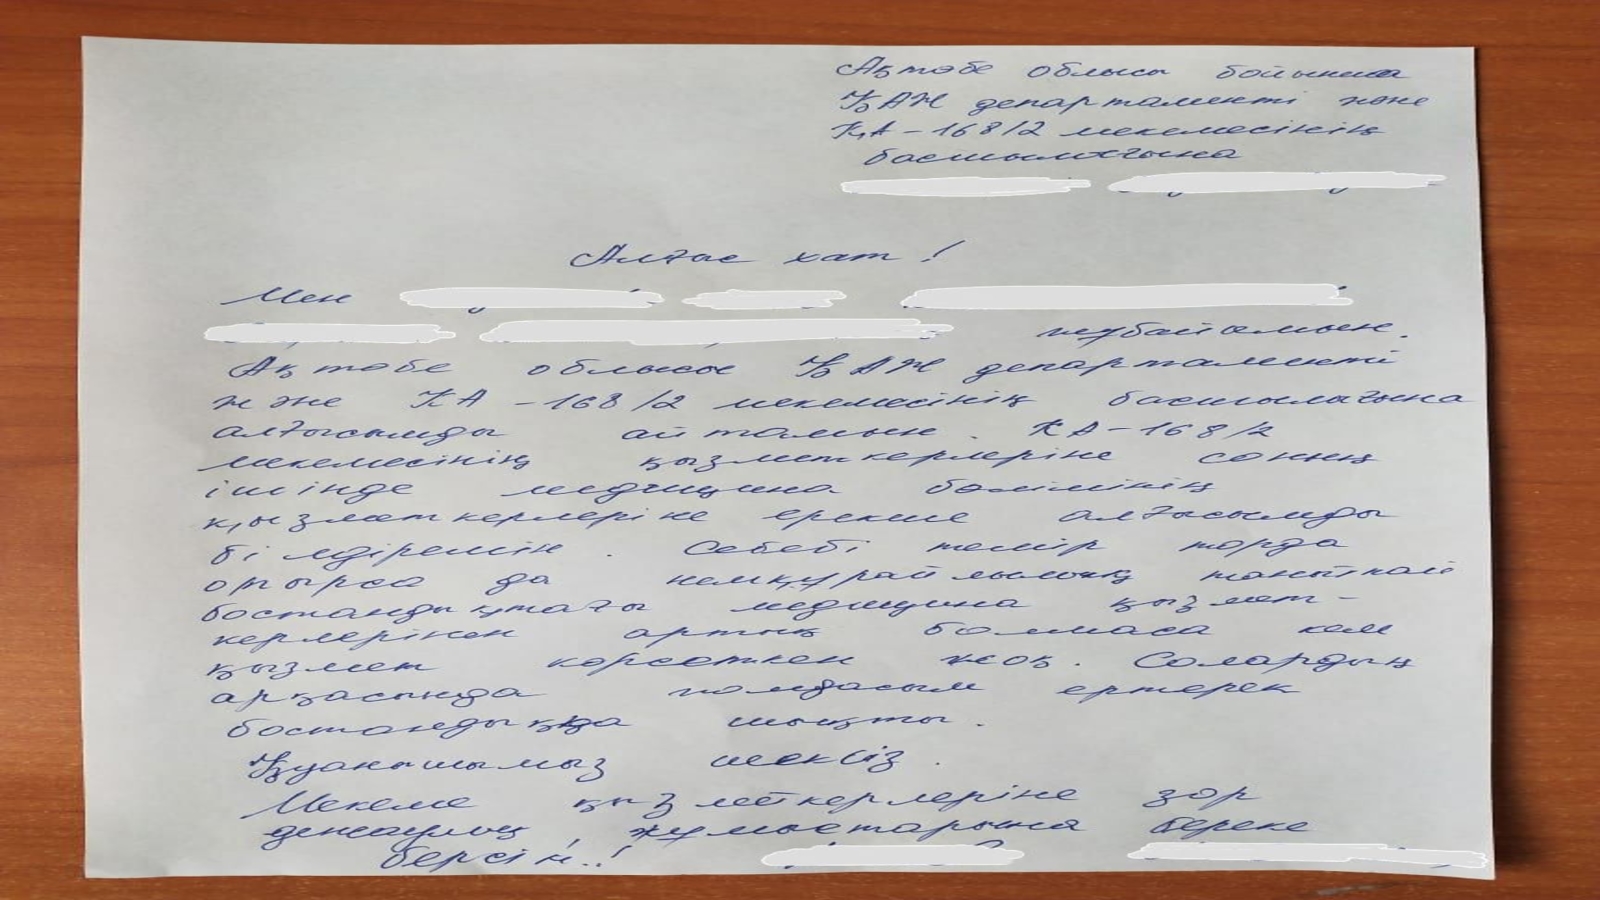 Ақтөбе облысы бойынша
ҚАЖ департаменті және
КА-168/2 мекемесінің
басшылығына
Алғыс хат!
Мен
жұбайымын.
Ақтөбе облысы ҚАЖ департаменті
және КА-168/2 мекемесінің басшылығына
алғысымды айтамын. КА-168/2
мекемесінің қызметкерлеріне соның
ішінде медицина бөлімінің
қызметкерлеріне ерекше алғысымды
білдіремін. Себебі темір торда
отырса да немқұрайлылық танытпай
бостандықтағы медицина қызмет-
керлерінен артық болмаса кем
қызмет көрсеткен жоқ. Солардың
арқасында жолдасым ертерек
бостандыққа шықты.
Қуанышымыз шексіз.
Мекеме қызметкерлеріне зор
денсаулық, жұмыстарына береке
берсін..!